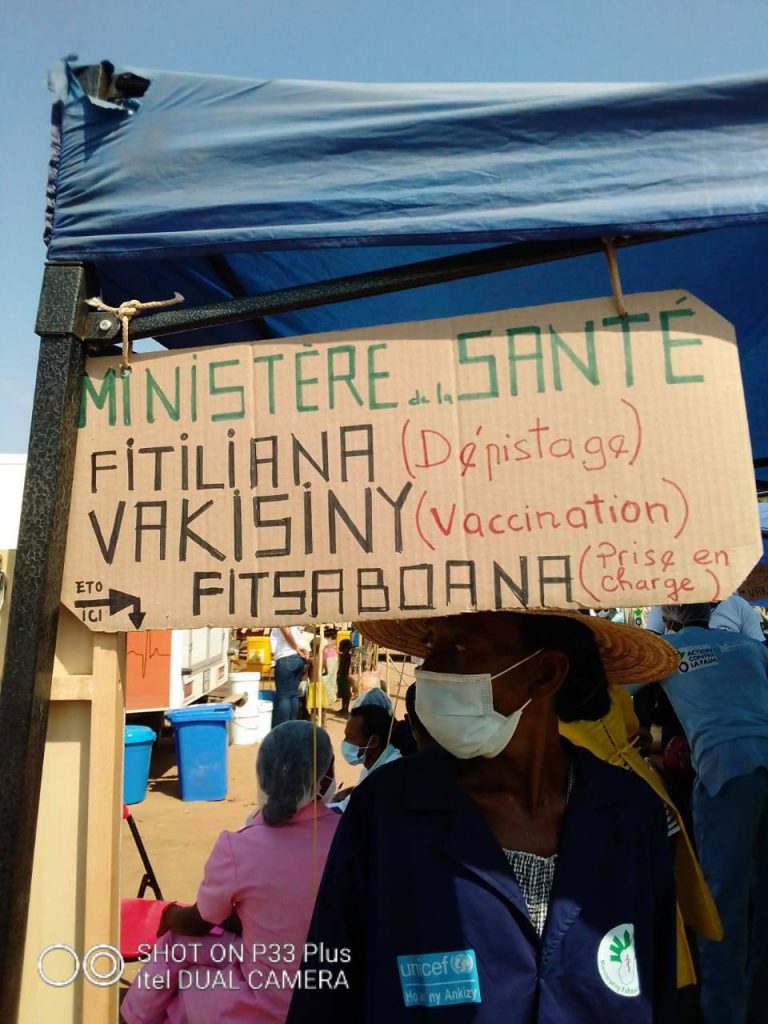 MINISTÈRE de la SANTÉ
FITILIANA (Dépistage)
VAKISINY (Vaccination)
FITSABOANA (Prise en charge)
ETO
ICI
ACTION
CONTRE
LA FAIM
unicef
Ankizy
SHOT ON P33 Plus
itel DUAL CAMERA